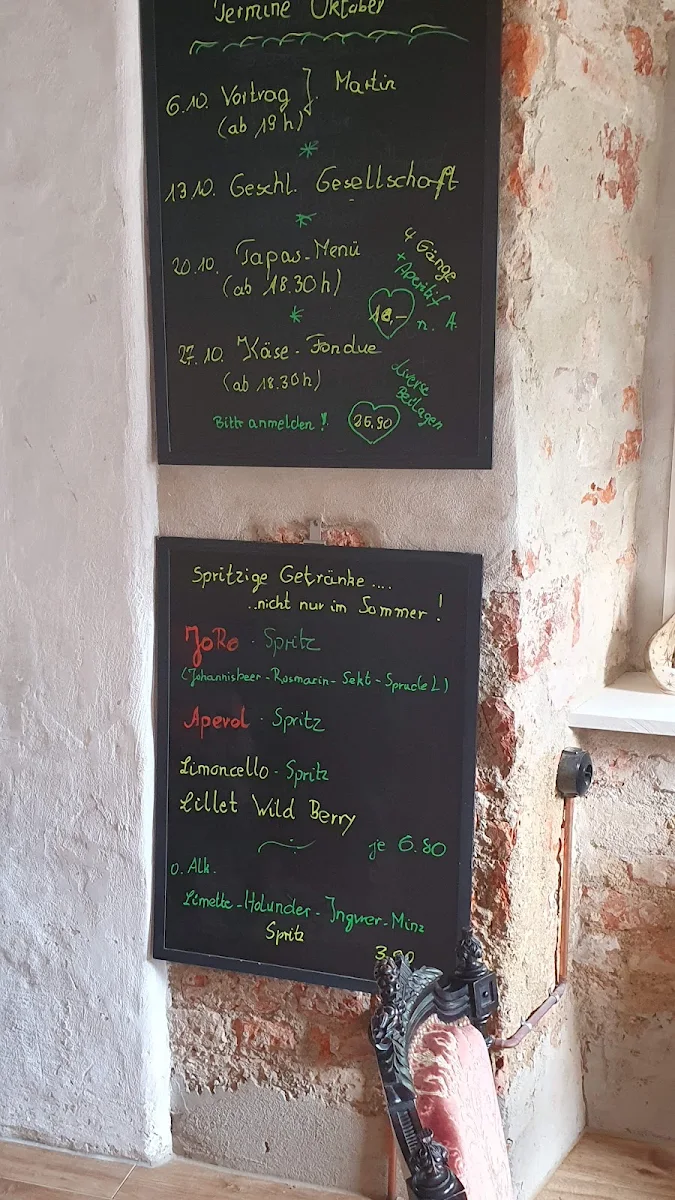 Termine Oktober
6.10. Vortrag } Martin
(ab 19 h)
*
13.10. Geschl. Gesellschaft
*
20.10. Tapas-Menü
(ab 18.30 h)
4 Gänge
+ Aperitif
18,- n. A.
*
27.10. Käse-Fondue
(ab 18.30 h)
diverse
Beilagen
Bitte anmelden! 25.90
Spritzige Getränke ....
..nicht nur im Sommer!
JoRo - Spritz
(Johannisbeer-Rosmarin-Sekt-Sprudel)
Aperol - Spritz
Limoncello - Spritz
Lillet Wild Berry
je 6.80
o. Alk.
Limette-Holunder-Ingwer-Minz
Spritz